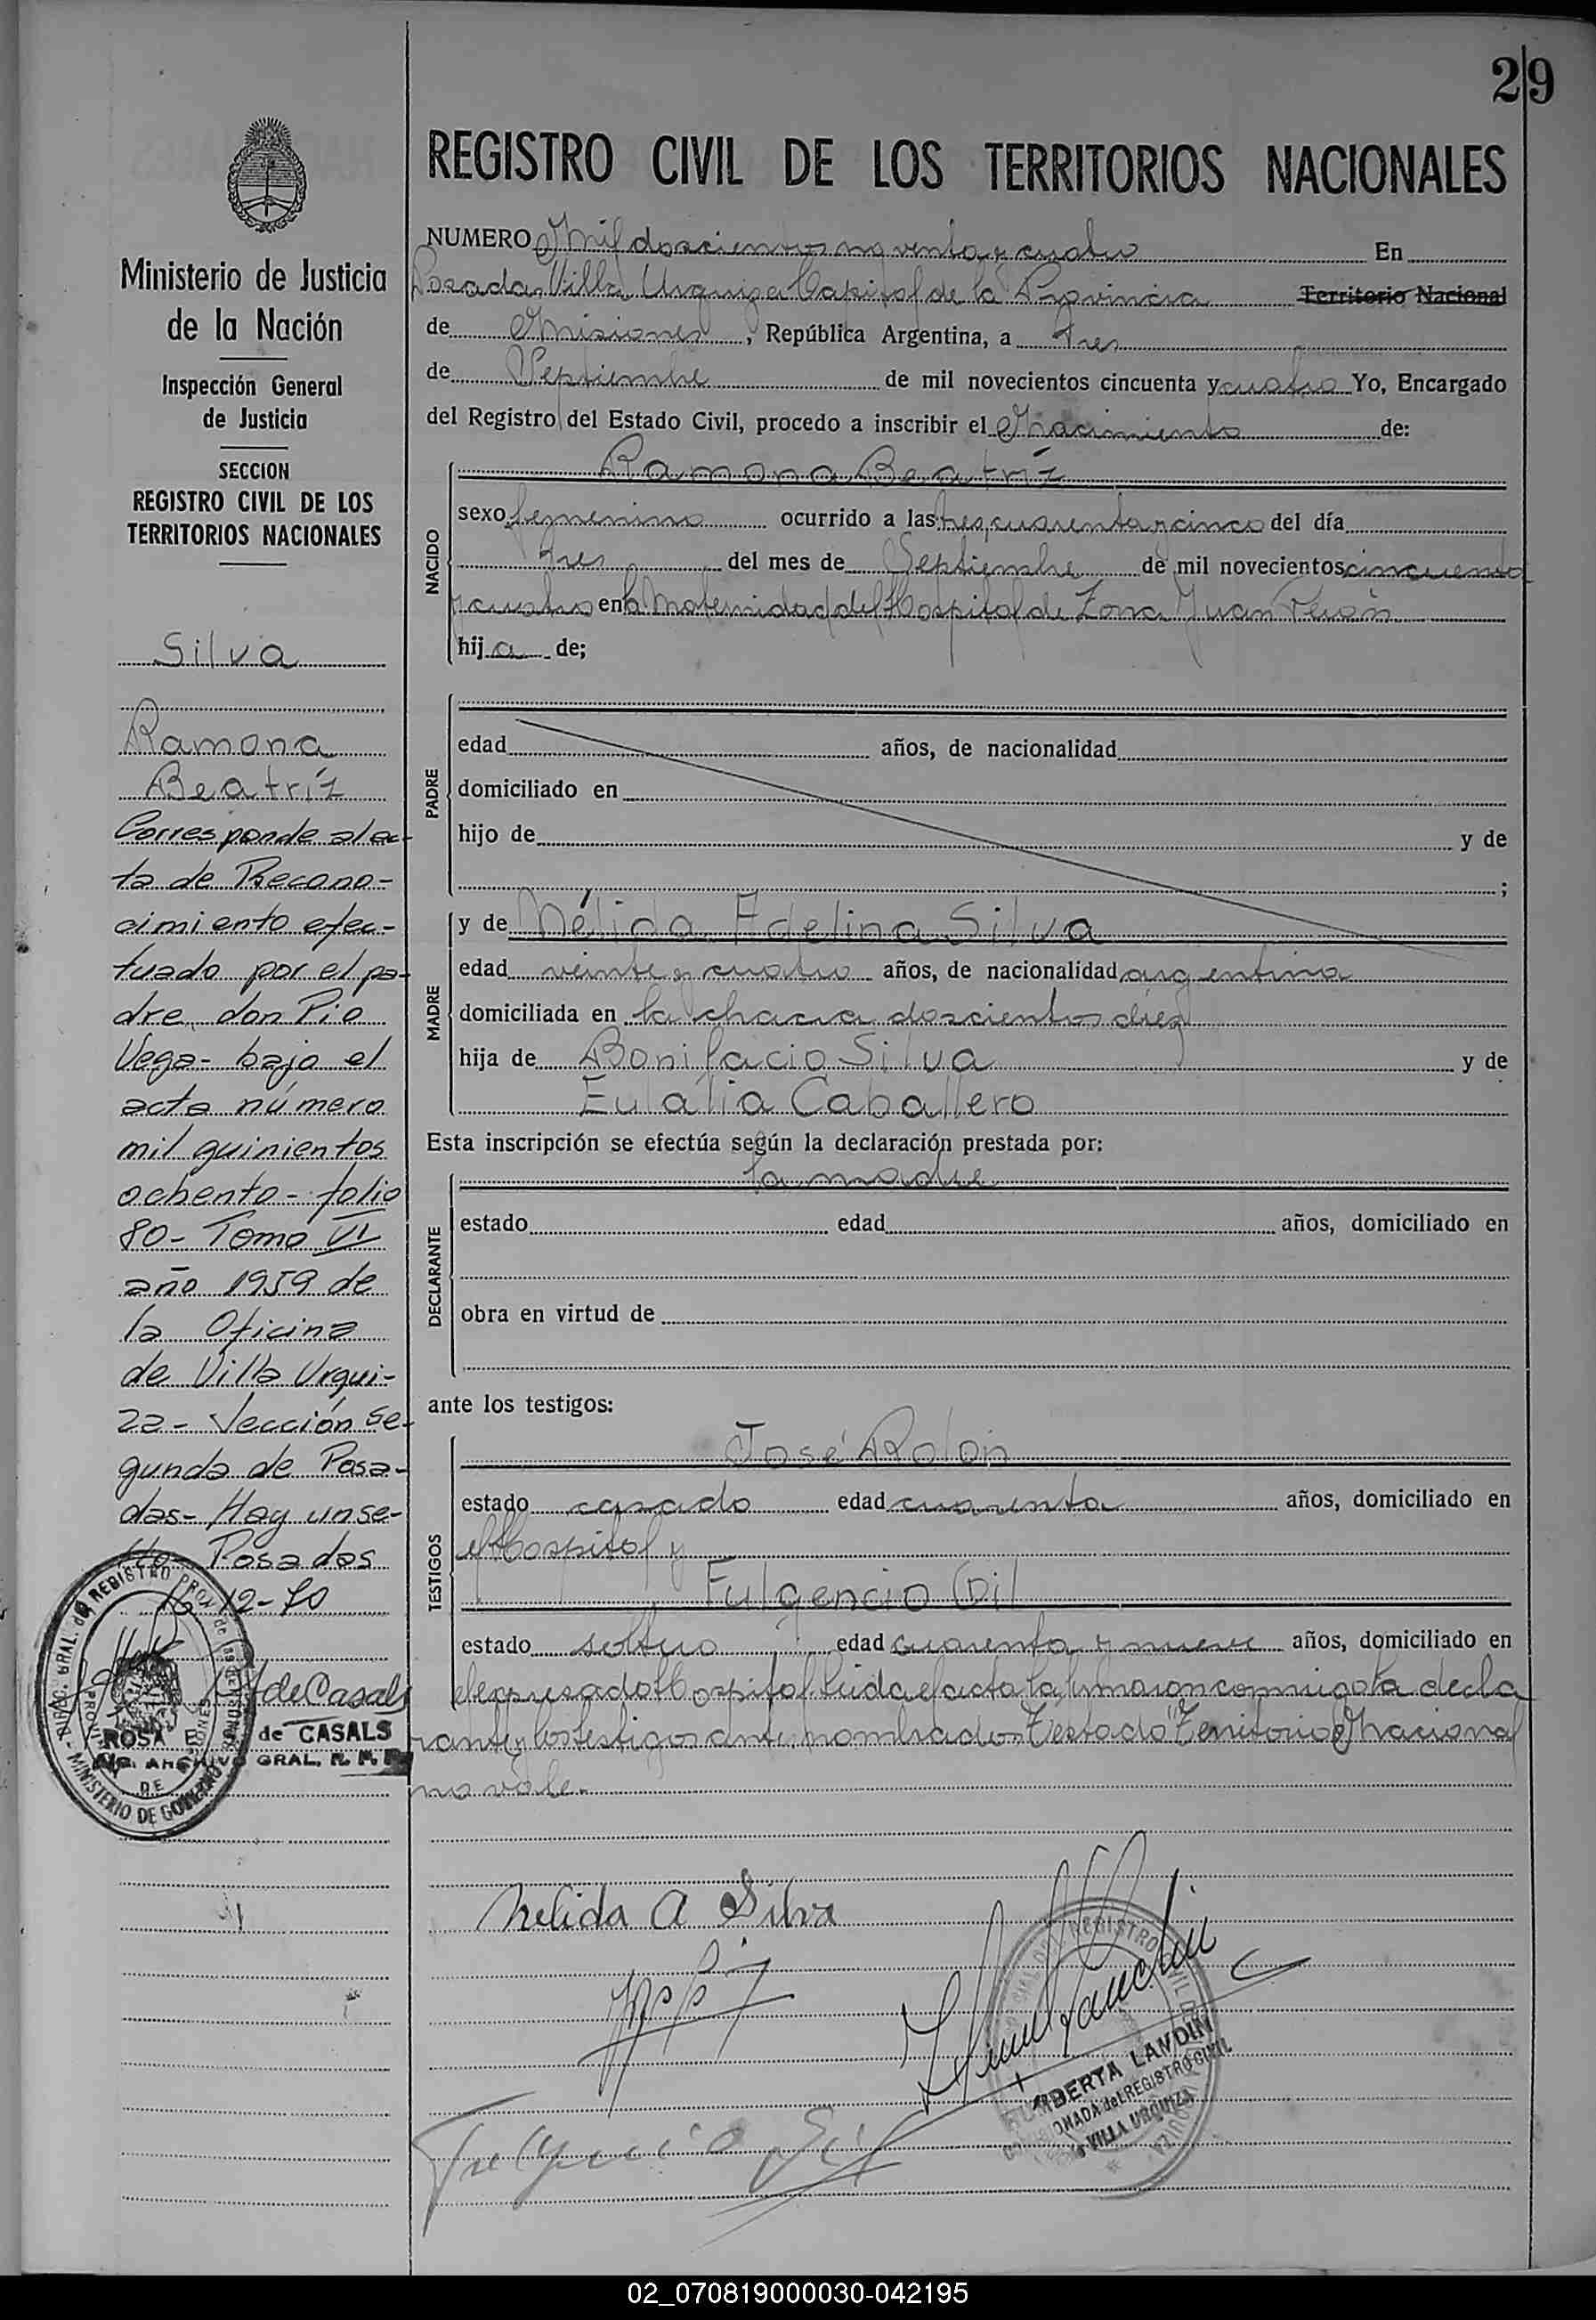 29
REGISTRO CIVIL DE LOS TERRITORIOS NACIONALES
Ministerio de Justicia
de la Nación
Inspección General
de Justicia
SECCION
REGISTRO CIVIL DE LOS
TERRITORIOS NACIONALES
Silva
Ramona
Beatríz
Corresponde al ac-
ta de Recono-
cimiento efec-
tuado por el pa-
dre, don Pio
Vega - bajo el
acta número
mil quinientos
ochenta - folio
80 - Tomo VI
año 1959 de
la Oficina
de Villa Urqui-
za - Sección Se-
gunda de Posa-
das - Hay un se-
llo - Posadas
16-12-70
de Casals
ROSA E. de CASALS
GRAL.
NUMERO Mil doscientos noventa y cuatro En
Posadas Villa Urquiza Capital de la Provincia Territorio Nacional
de Misiones, República Argentina, a tres
de Septiembre de mil novecientos cincuenta y cuatro Yo, Encargado
del Registro del Estado Civil, procedo a inscribir el Nacimiento de:
NACIDO
Ramona Beatríz
sexo femenino ocurrido a las tres, cuarenta y cinco del día
tres del mes de Septiembre de mil novecientos cincuenta
y cuatro en la Maternidad del Hospital de Zona Juan Perón
hija de;
PADRE
edad años, de nacionalidad
domiciliado en
hijo de y de
;
MADRE
y de Nélida Adelina Silva
edad veinte y cuatro años, de nacionalidad argentina
domiciliada en la chacra doscientos diez
hija de Bonifacio Silva y de
Eulalia Caballero
Esta inscripción se efectúa según la declaración prestada por:
DECLARANTE
la madre
estado edad años, domiciliado en
obra en virtud de
ante los testigos:
TESTIGOS
José Rolon
estado casado edad cuarenta años, domiciliado en
el Hospital y
Fulgencio Gil
estado soltero edad cuarenta y nueve años, domiciliado en
el expresado Hospital Leida el acta la firmaron conmigo la decla
rante y los testigos ante nombrados Testado "Territorio Nacional
no vale.-
Nelida A Silva
Fulgencio Gil
HUMBERTA LANDIN
del REGISTRO CIVIL
VILLA URQUIZA
02_070819000030-042195